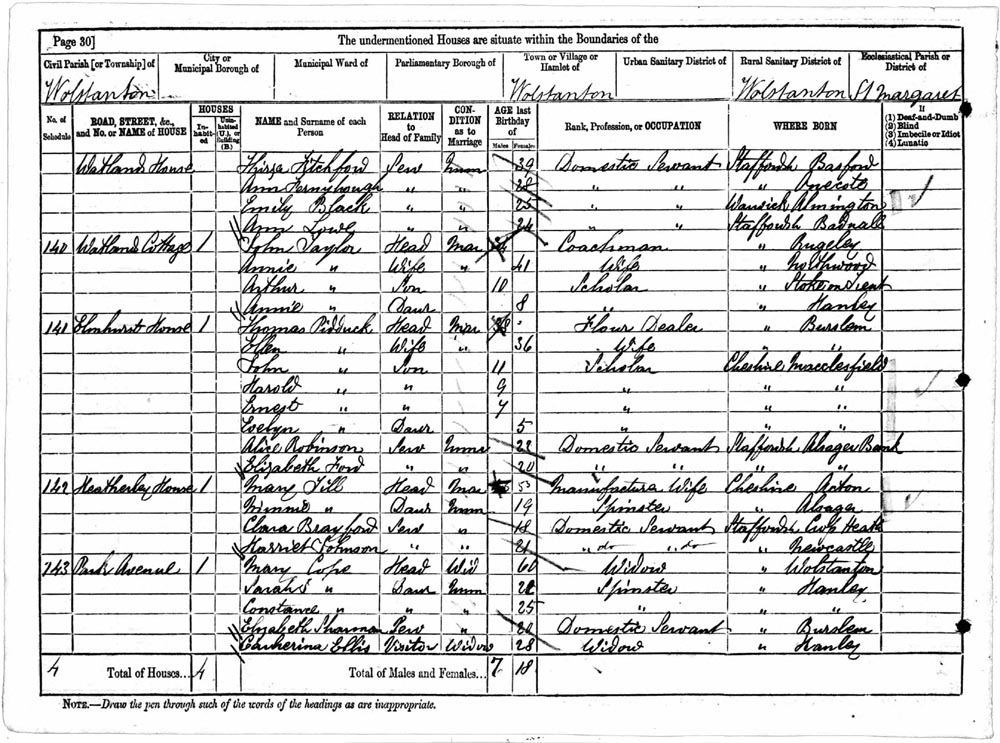 Page 30]
The undermentioned Houses are situate within the Boundaries of the
Civil Parish [or Township] of City or Municipal Borough of Municipal Ward of Parliamentary Borough of Town or Village or Hamlet of Urban Sanitary District of Rural Sanitary District of Ecclesiastical Parish or District of
Wolstanton Wolstanton Wolstanton St Margaret
No. of Schedule ROAD, STREET, &c., and No. or NAME of HOUSE HOUSES Inhabited Uninhabited (U.), or Building (B.) NAME and Surname of each Person RELATION to Head of Family CONDITION as to Marriage AGE last Birthday of Males Females Rank, Profession, or OCCUPATION WHERE BORN If (1) Deaf-and-Dumb (2) Blind (3) Imbecile or Idiot (4) Lunatic
Watland House Pitchford Serv Unm 39 Domestic Servant Staffordsh Basford
Ann Fernyhough " " 28 " " " Onecote
Emily Black " " 25 " " Warwick Almington
Ann Lowe " " 24 " " Staffordsh Bagnall
140 Watland Cottage 1 John Taylor Head Mar Coachman " Rugeley
Annie " Wife " 41 Wife " Northwood
Arthur " Son 10 Scholar " Stoke on Trent
Annie " Daur 8 " " Hanley
141 Elmhurst House 1 Thomas Pidduck Head Mar 38 Flour Dealer " Burslem
Ellen " Wife " 36 Wife " "
John " Son 11 Scholar Cheshire Macclesfield
Harold " " 9 " " "
Ernest " " 7 " " "
Evelyn " Daur 5 " " "
Alice Robinson Serv Unm 22 Domestic Servant Staffordsh Alsager Bank
Elizabeth Ford " " 20 " " " Acton
142 Heatherley House 1 Mary Till Head Mar 53 Manufacturs Wife Cheshire Acton
Minnie " Daur Unm 19 Spinster " Alsager
Clara Brayford Serv " 18 Domestic Servant Staffordsh Cross Heath
Harriet Johnson " " 21 " do " do " Newcastle
143 Park Avenue 1 Mary Cope Head Wid 60 Widow " Wolstanton
Sarah " Daur Unm Spinster " Hanley
Constance " " " 25 " " "
Elizabeth Sharman Serv " 20 Domestic Servant " Burslem
Catherina Ellis Visitor Widow 28 Widow " Hanley
4 Total of Houses... 4 Total of Males and Females... 7 18
NOTE.—Draw the pen through such of the words of the headings as are inappropriate.